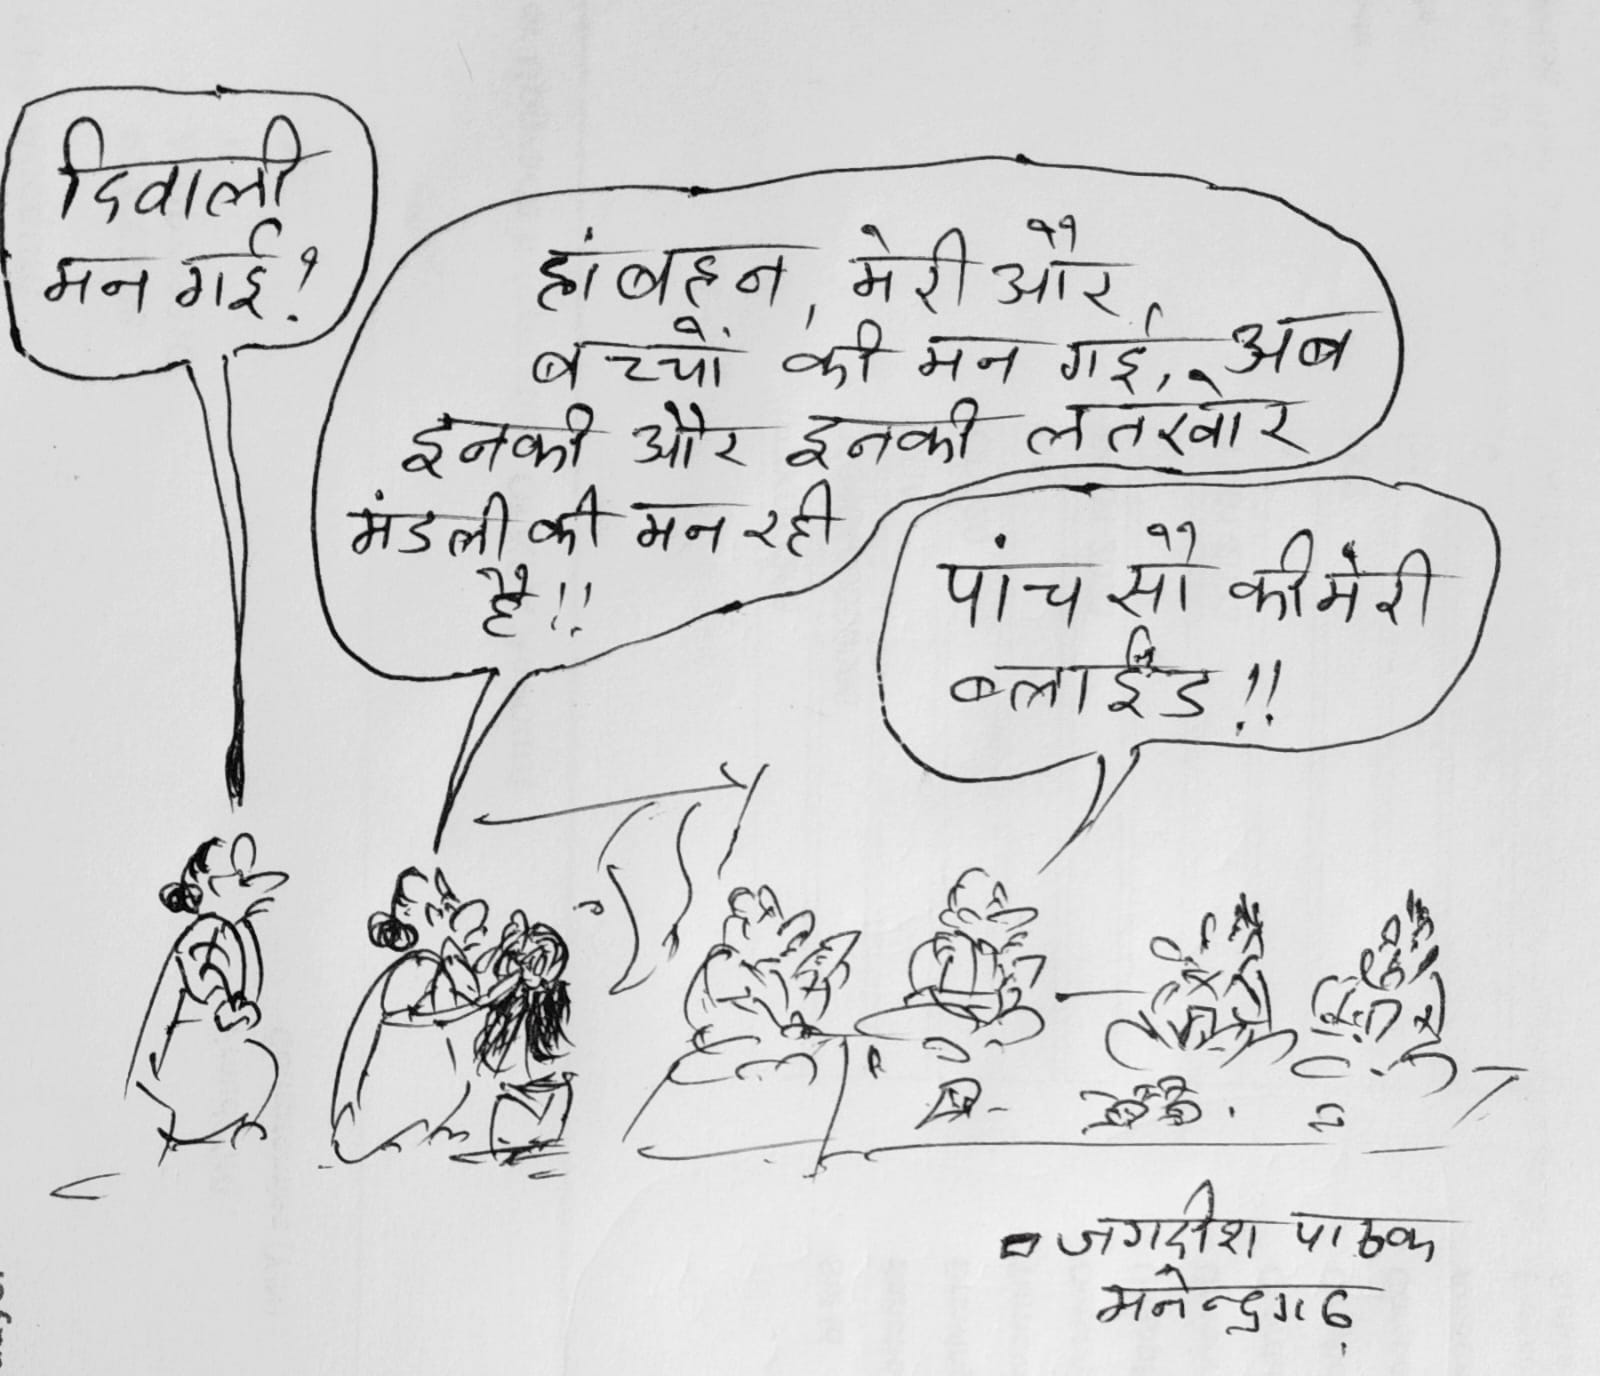 दिवाली
मन गई?
हां बहन, मेरी और
बच्चों की मन गई, अब
इनकी और इनकी लतखोर
मंडली की मन रही
है!!
पांच सौ की मेरी
ब्लाईंड!!
जगदीश पाठक
मनेन्द्रगढ़